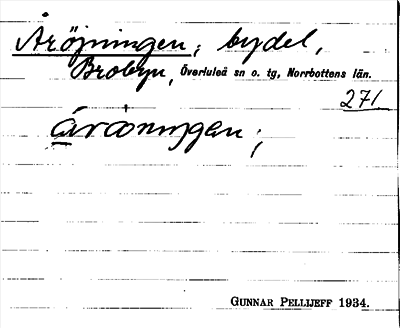 Åröjningen, bydel,
Brobyn, Överluleå sn o. tg, Norrbottens län.
271
Gunnar Pellijeff 1934.